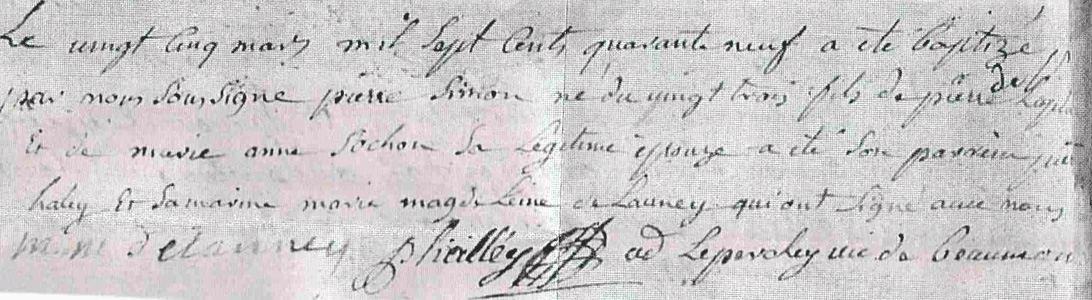 Le vingt Cinq mars mil Sept Cents quarante neuf a eté baptizé
par nous Soussigné pierre Simon né du vingt trois fils de pierre de
Et de marie anne Sochon Sa Legitime epouze a eté Son parrein
haley Et Sa marine marie magdeleine de Launey qui ont Signé avec nous
m m delauney phailley ad Leperchey vic de beaumon